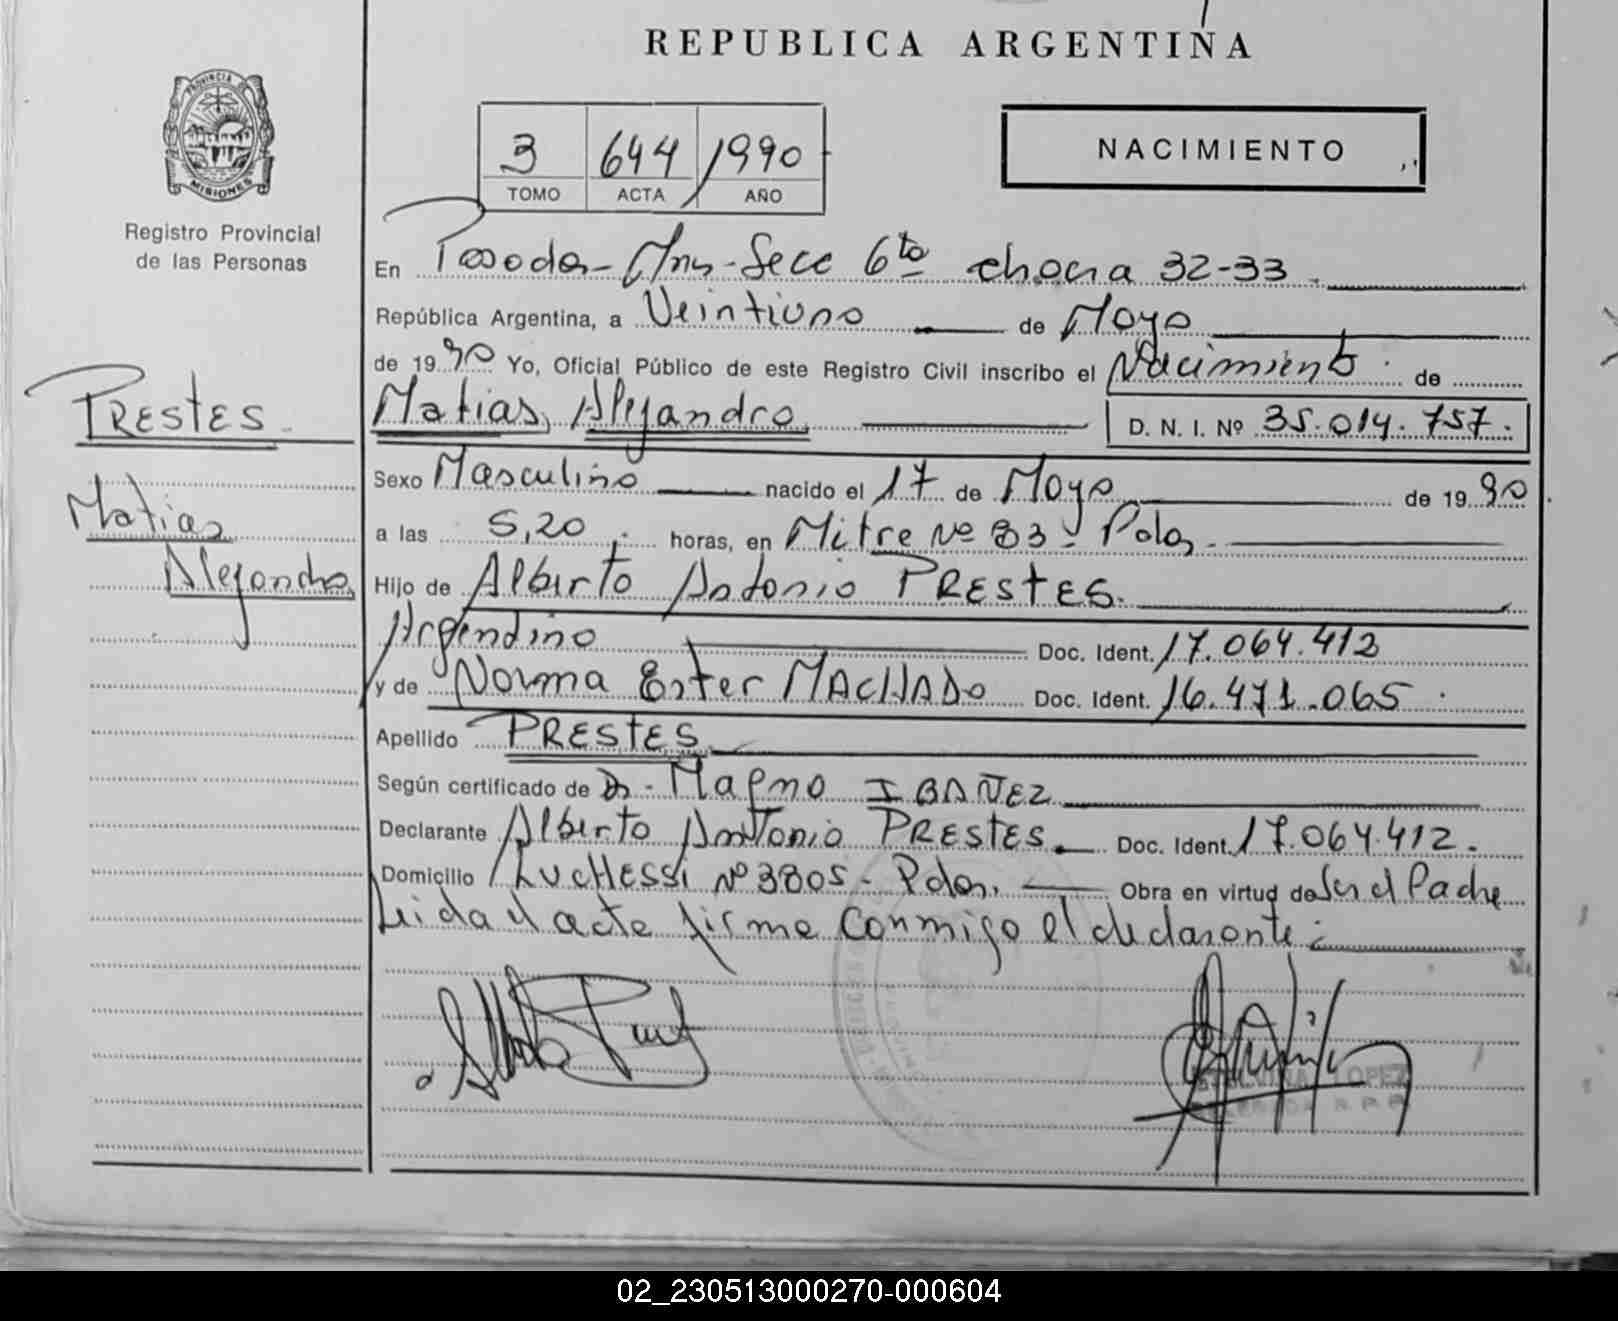 REPUBLICA ARGENTINA
PROVINCIA DE
MISIONES
Registro Provincial
de las Personas
3 644 1990
TOMO ACTA AÑO
NACIMIENTO
En Posadas - Mns - Secc 6ta chacra 32-33
República Argentina, a Veintiuno de Mayo
de 1990 Yo, Oficial Público de este Registro Civil inscribo el Nacimiento de
PRESTES
Matias Alejandro
Matias, Alejandro D. N. I. Nº 35.014.757.
Sexo Masculino nacido el 17 de Mayo de 1990
a las 5,20 horas, en Mitre Nº 83 - Pdas.
Hijo de Alberto Antonio PRESTES.
Argentino Doc. Ident. 17.064.412
y de Norma Ester MACHADO Doc. Ident. 16.471.065
Apellido PRESTES
Según certificado de Dr. Magno IBAÑEZ
Declarante Alberto Antonio PRESTES. Doc. Ident. 17.064.412.
Domicilio LUCHESSI Nº 3805 - Pdas. Obra en virtud de Ser el Padre
Leida el acta firma conmigo el declarante:
LOPEZ
02_230513000270-000604